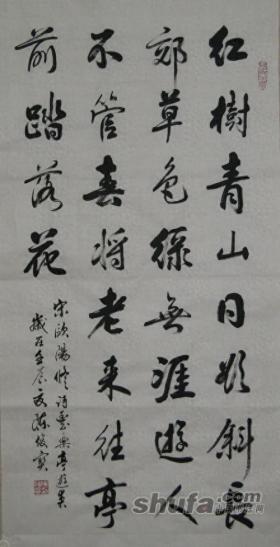 红樹青山日欲斜長
郊草色緑無涯遊人
不管春将老来往亭
前踏落花
宋欧陽修诗豐樂亭遊春
歲在壬辰之夏陈俊寳
shufa.com